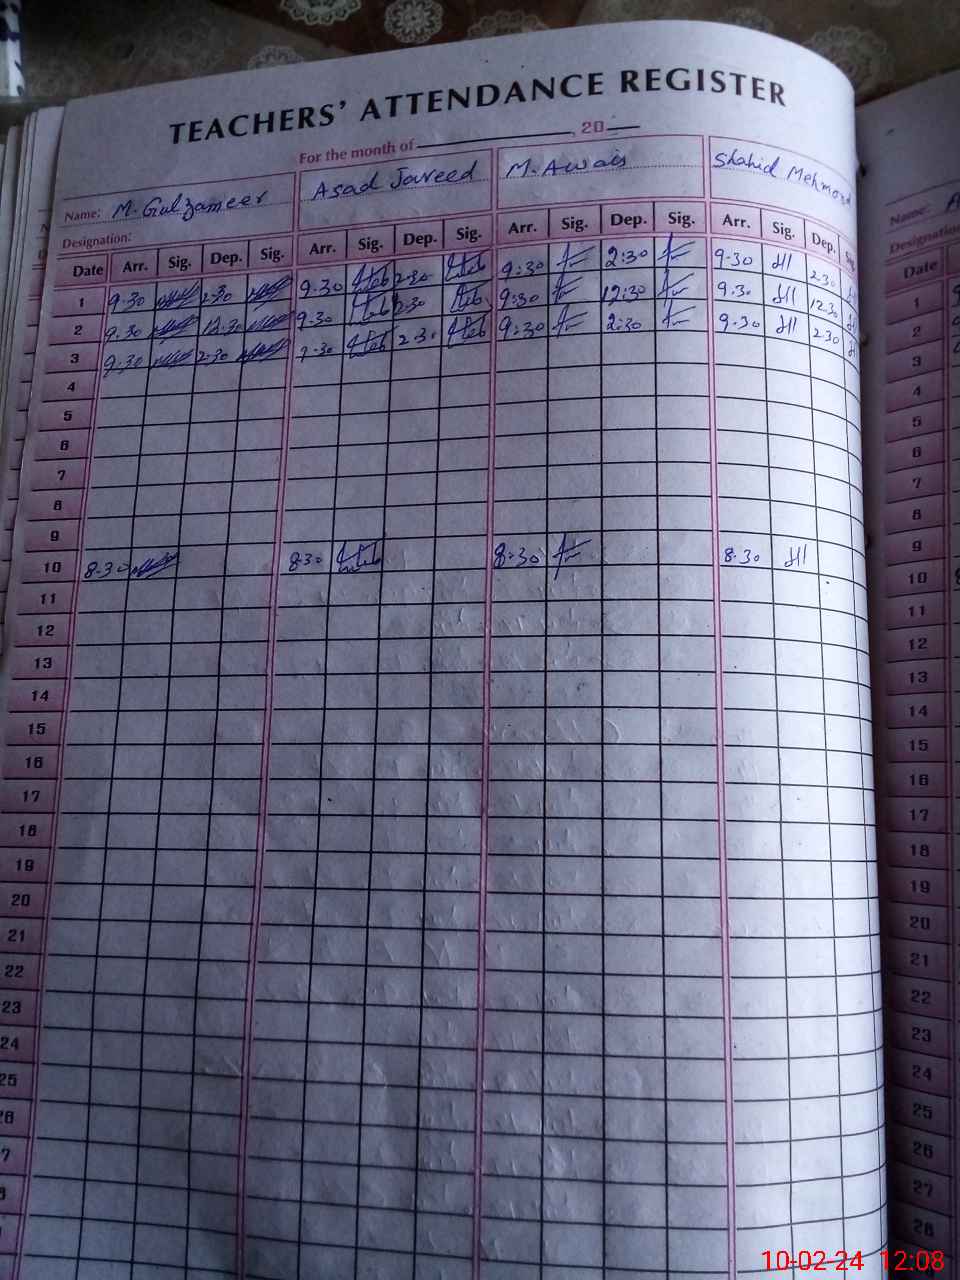 TEACHERS' ATTENDANCE REGISTER
For the month of , 20
Name: M. Gulzameer Asad Javeed M. Awais Shahid Mehmood Name:
Designation: Designation
Date Arr. Sig. Dep. Sig. Arr. Sig. Dep. Sig. Arr. Sig. Dep. Sig. Arr. Sig. Dep. Date
1 9.30 2.30 9.30 2.30 9:30 2:30 9.30 2.30 1
2 9.30 12.30 9.30 2.30 9:30 12:30 9.30 12.30 2
3 9.30 2.30 9.30 2.30 9:30 2:30 9.30 2.30 3
4 4
5 5
6 6
7 7
8 8
9 9
10 8.30 8.30 8:30 8.30 10
11 11
12 12
13 13
14 14
15 15
16 16
17 17
18 18
19 19
20 20
21 21
22 22
23 23
24 24
25 25
26 26
7 27
28
10-02-24 12:08